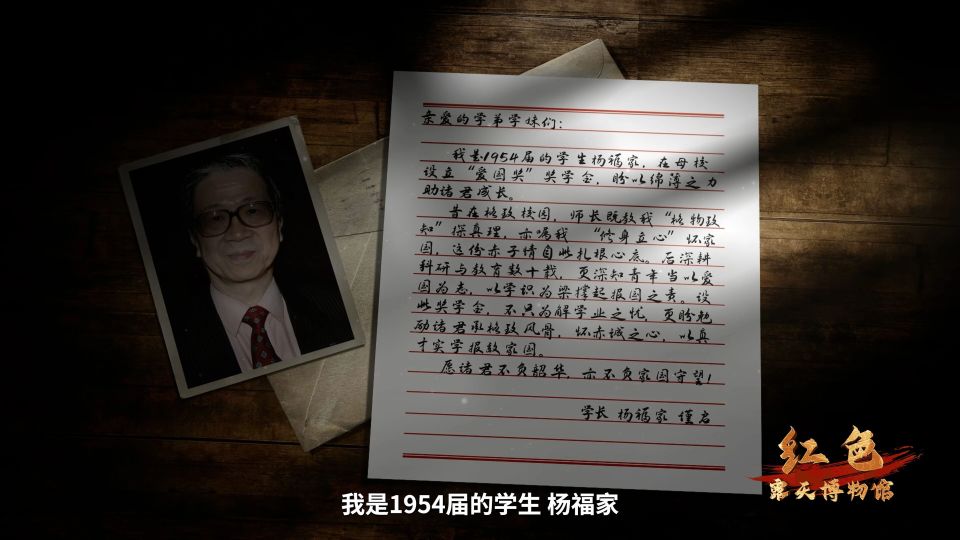 亲爱的学弟学妹们：
我是1954届的学生杨福家，在母校
设立“爱国奖”奖学金，盼以绵薄之力
助诸君成长。
昔在格致校园，师长既教我“格物致
知”探真理，亦嘱我“修身立心”怀家
国，这份赤子情自此扎根心底。后深耕
科研与教育数十载，更深知青年当以爱
国为志，以学识为梁撑起报国之责。设
此奖学金，不只为解学业之忧，更盼勉
励诸君承格致风骨，怀赤诚之心，以真
才实学报效家国。
愿诸君不负韶华，亦不负家国守望！
学长 杨福家 谨启
红色
露天博物馆
我是1954届的学生 杨福家